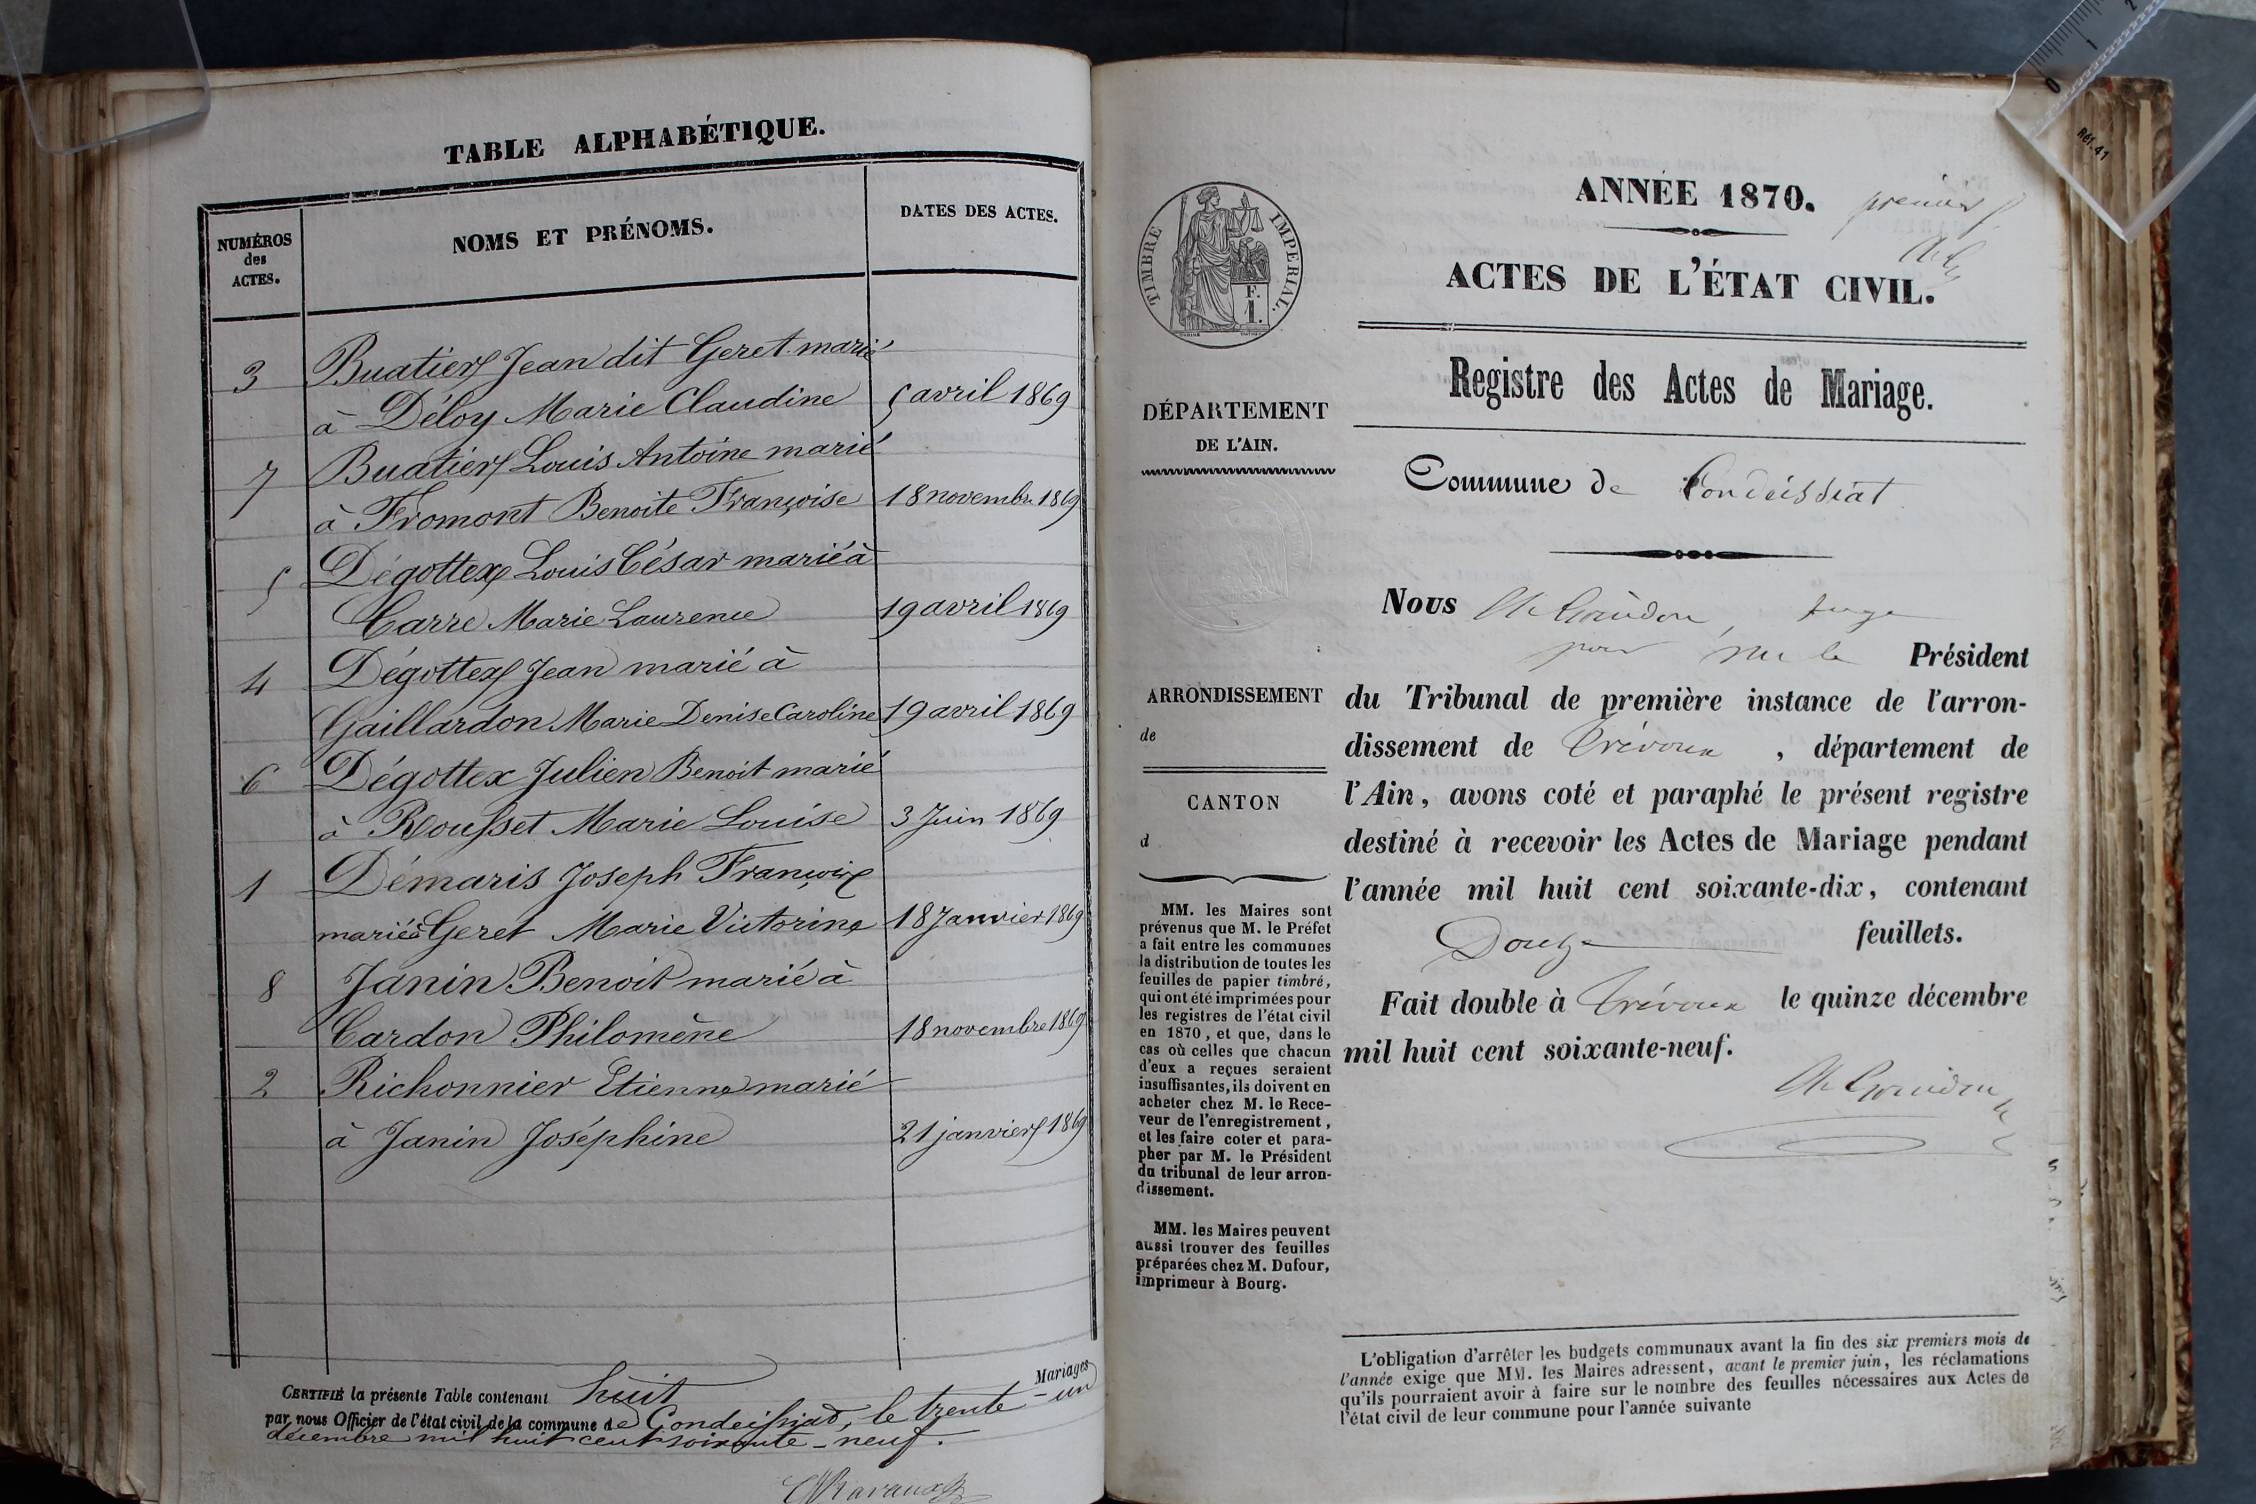 TABLE ALPHABÉTIQUE.
NUMÉROS
des
ACTES.
NOMS ET PRÉNOMS.
DATES DES ACTES.
3 Buatier Jean dit Geret marié
à Déloy Marie Claudine 5 avril 1869
7 Buatier Louis Antoine marié
à Fromont Benoite Françoise 18 novembre 1869
5 Dégottex Louis César marié à
Carre Marie Laurence 19 avril 1869
4 Dégottex Jean marié à
Gaillardon Marie Denise Caroline 19 avril 1869
6 Dégottex Julien Benoit marié
à Rousset Marie Louise 3 Juin 1869
1 Démaris Joseph François
marié à Geret Marie Victorine 18 Janvier 1869
8 Janin Benoit marié à
Cardon Philomène 18 novembre 1869
2 Richonnier Etienne marié
à Janin Joséphine 21 janvier 1869
CERTIFIÉ la présente Table contenant huit Mariages
par nous Officier de l'état civil de la commune de Condeissiat, le trente-un
décembre mil huit cent soixante-neuf.
TIMBRE IMPÉRIAL.
F.
1.
DÉPARTEMENT
DE L'AIN.
ARRONDISSEMENT
de
CANTON
d
MM. les Maires sont
prévenus que M. le Préfet
a fait entre les communes
la distribution de toutes les
feuilles de papier timbré,
qui ont été imprimées pour
les registres de l'état civil
en 1870, et que, dans le
cas où celles que chacun
d'eux a reçues seraient
insuffisantes, ils doivent en
acheter chez M. le Rece-
veur de l'enregistrement,
et les faire coter et para-
pher par M. le Président
du tribunal de leur arron-
dissement.
MM. les Maires peuvent
aussi trouver des feuilles
préparées chez M. Dufour,
imprimeur à Bourg.
ANNÉE 1870. premier f.
ACTES DE L'ÉTAT CIVIL.
Registre des Actes de Mariage.
Commune de Condeissiat
Nous juge
pour M. le Président
du Tribunal de première instance de l'arron-
dissement de Trévoux, département de
l'Ain, avons coté et paraphé le présent registre
destiné à recevoir les Actes de Mariage pendant
l'année mil huit cent soixante-dix, contenant
Douze feuillets.
Fait double à Trévoux le quinze décembre
mil huit cent soixante-neuf.
L'obligation d'arrêter les budgets communaux avant la fin des six premiers mois de
l'année exige que MM. les Maires adressent, avant le premier juin, les réclamations
qu'ils pourraient avoir à faire sur le nombre des feuilles nécessaires aux Actes de
l'état civil de leur commune pour l'année suivante
0 1 2
Réf. 41